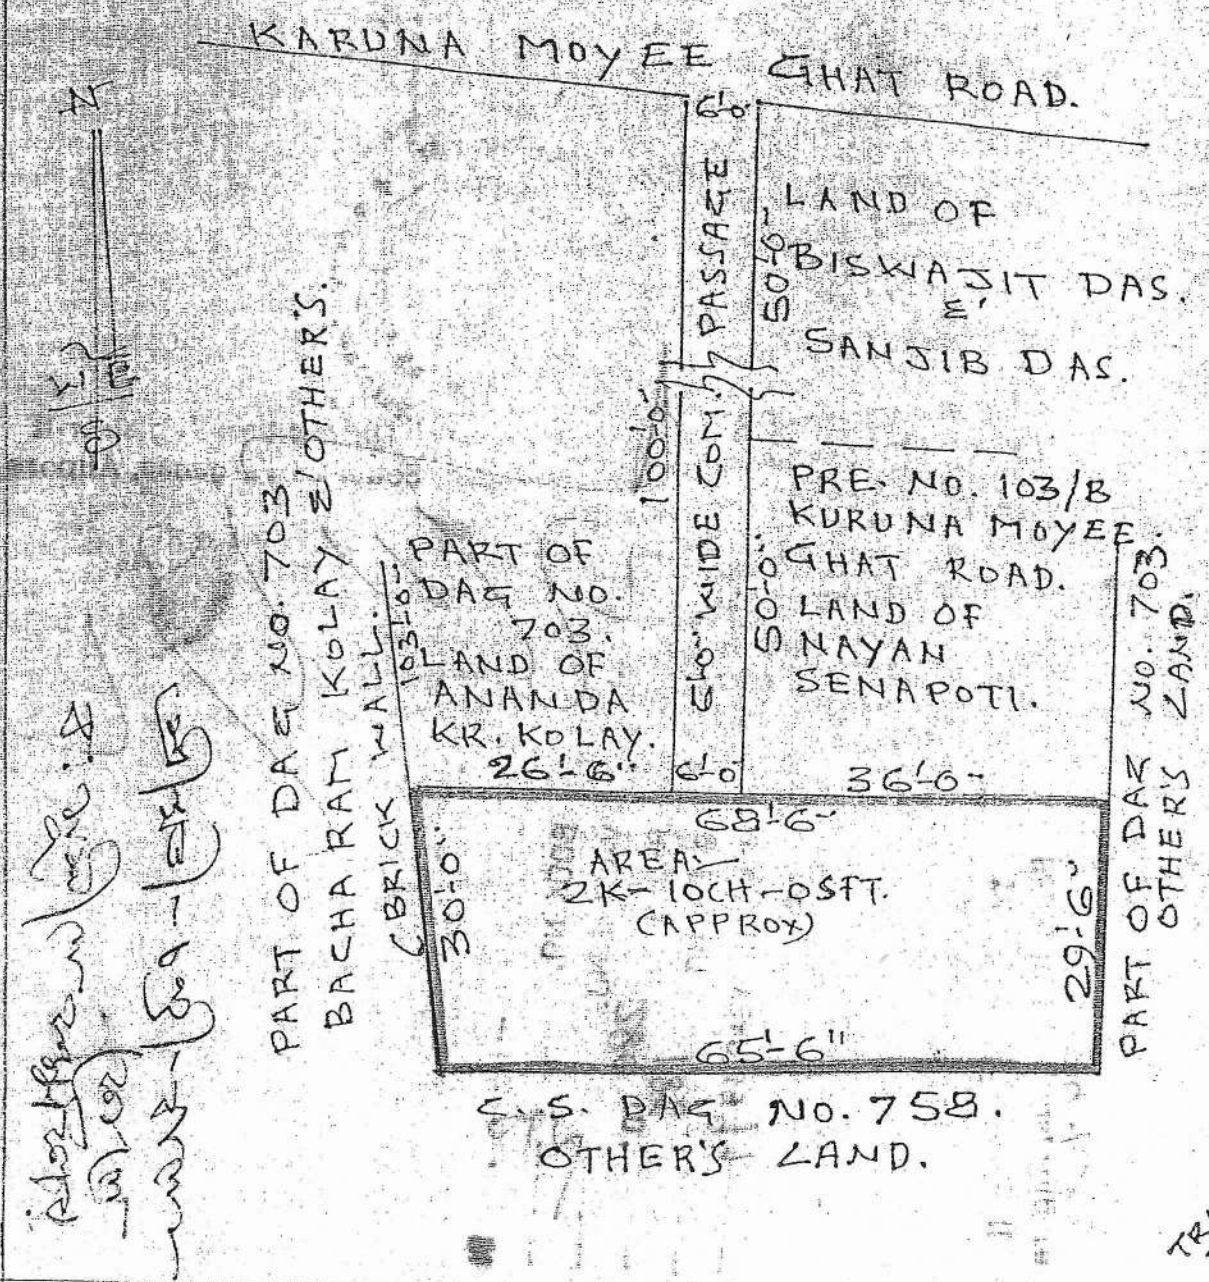 KARUNA MOYEE GHAT ROAD.
N
6'-0"
LAND OF
BISWAJIT DAS.
&
SANJIB DAS.
50'-0"
6'-0" WIDE COM. PASSAGE
100'-0"
PRE. NO. 103/B
KURUNA MOYEE
GHAT ROAD.
LAND OF
NAYAN
SENAPOTI.
50'-0"
PART OF DAG NO. 703
BACHARAM KOLAY &'OTHER'S.
(BRICK WALL.
103'-0"
PART OF
DAG NO.
703.
LAND OF
ANANDA
KR. KOLAY.
26'-6"
6'-0"
36'-0"
68'-6"
AREA:-
2K-10CH-0SFT.
(APPROX)
30'-0"
29'-6"
65'-6"
PART OF DAG NO. 703.
OTHER'S LAND.
C.S. DAG NO. 758.
OTHER'S LAND.